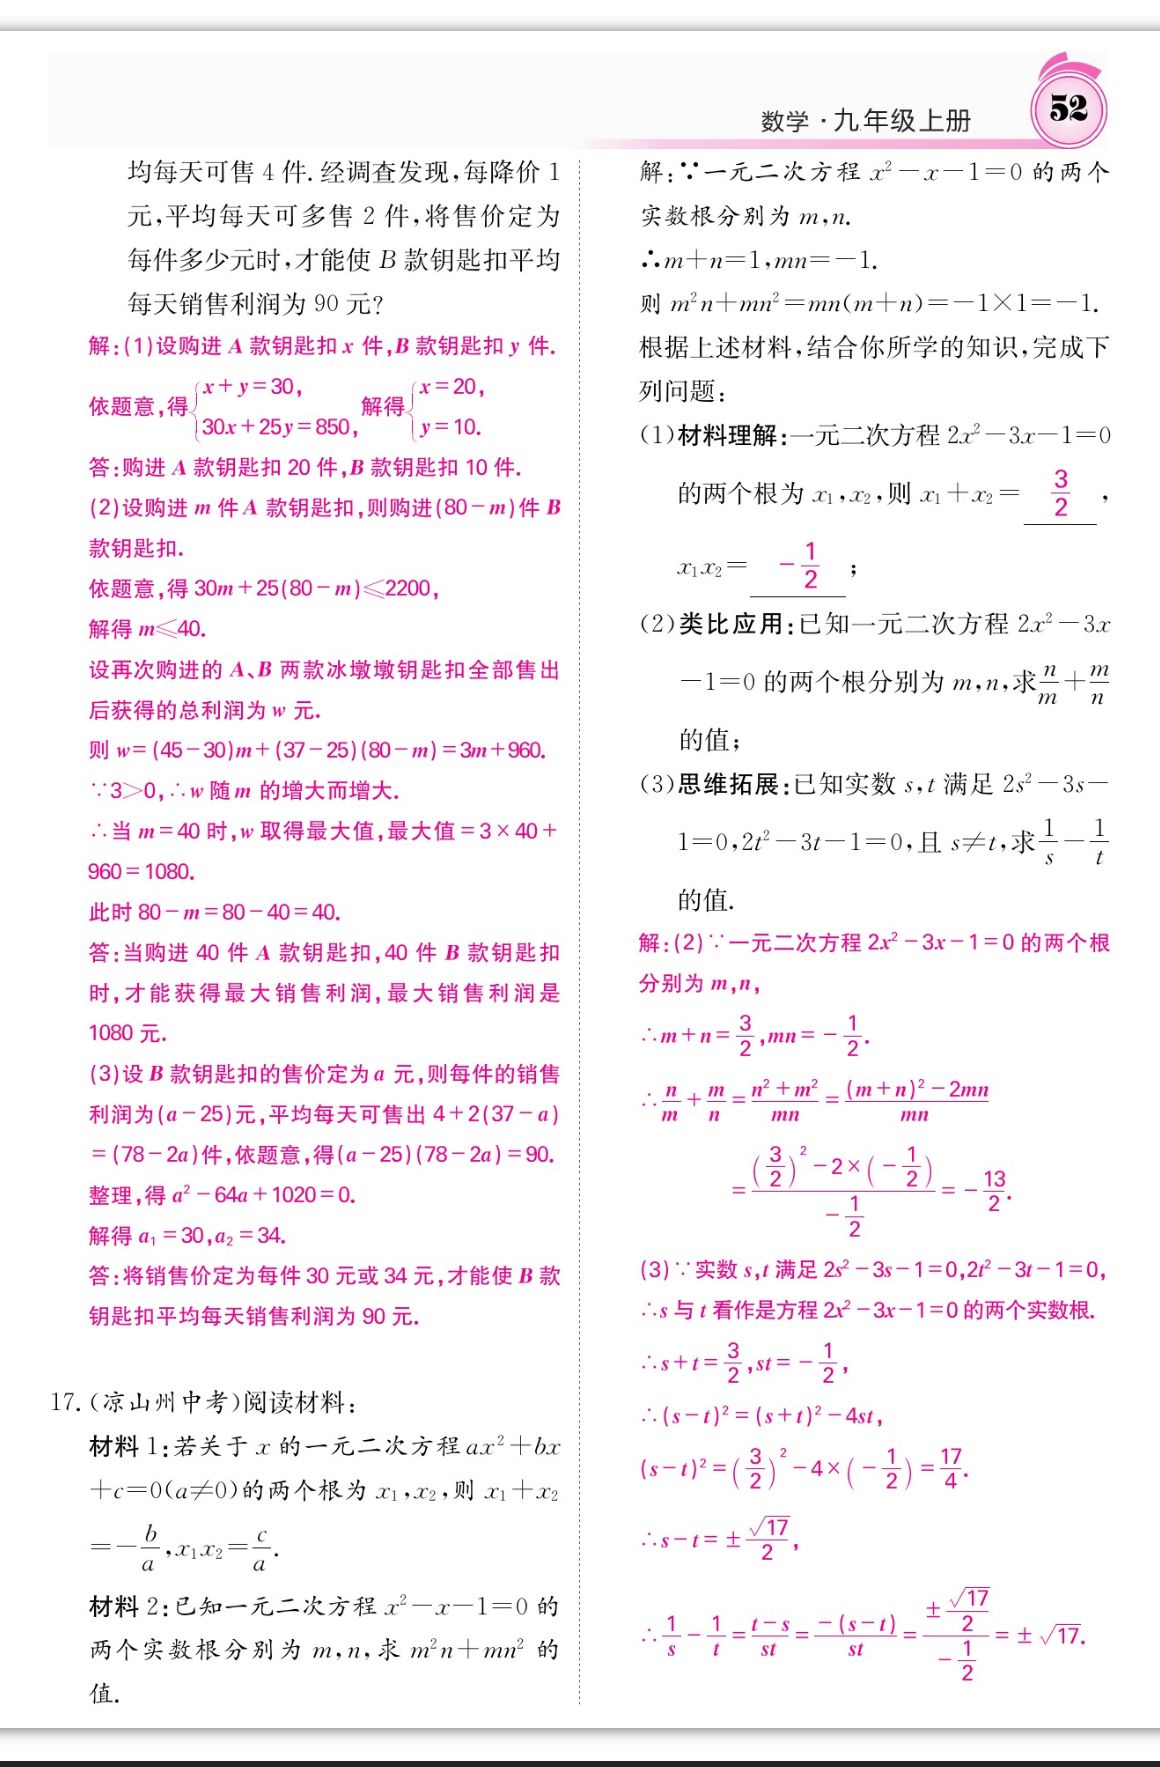 数学·九年级上册
52
均每天可售 4 件.经调查发现,每降价 1
元,平均每天可多售 2 件,将售价定为
每件多少元时,才能使 B 款钥匙扣平均
每天销售利润为 90 元?
解:(1)设购进 A 款钥匙扣 x 件,B 款钥匙扣 y 件.
依题意,得{x+y=30, 30x+25y=850, 解得{x=20, y=10.
答:购进 A 款钥匙扣 20 件,B 款钥匙扣 10 件.
(2)设购进 m 件 A 款钥匙扣,则购进(80-m)件 B
款钥匙扣.
依题意,得 30m+25(80-m)≤2200,
解得 m≤40.
设再次购进的 A、B 两款冰墩墩钥匙扣全部售出
后获得的总利润为 w 元.
则 w=(45-30)m+(37-25)(80-m)=3m+960.
∵3>0,∴w 随 m 的增大而增大.
∴当 m=40 时,w 取得最大值,最大值=3×40+
960=1080.
此时 80-m=80-40=40.
答:当购进 40 件 A 款钥匙扣,40 件 B 款钥匙扣
时,才能获得最大销售利润,最大销售利润是
1080 元.
(3)设 B 款钥匙扣的售价定为 a 元,则每件的销售
利润为(a-25)元,平均每天可售出 4+2(37-a)
=(78-2a)件,依题意,得(a-25)(78-2a)=90.
整理,得 a²-64a+1020=0.
解得 a₁=30,a₂=34.
答:将销售价定为每件 30 元或 34 元,才能使 B 款
钥匙扣平均每天销售利润为 90 元.
17.(凉山州中考)阅读材料:
材料 1:若关于 x 的一元二次方程 ax²+bx
+c=0(a≠0)的两个根为 x₁,x₂,则 x₁+x₂
=-b/a,x₁x₂=c/a.
材料 2:已知一元二次方程 x²-x-1=0 的
两个实数根分别为 m,n,求 m²n+mn² 的
值.
解:∵一元二次方程 x²-x-1=0 的两个
实数根分别为 m,n.
∴m+n=1,mn=-1.
则 m²n+mn²=mn(m+n)=-1×1=-1.
根据上述材料,结合你所学的知识,完成下
列问题:
(1)材料理解:一元二次方程 2x²-3x-1=0
的两个根为 x₁,x₂,则 x₁+x₂= 3/2 ,
x₁x₂= -1/2 ;
(2)类比应用:已知一元二次方程 2x²-3x
-1=0 的两个根分别为 m,n,求 n/m+m/n
的值;
(3)思维拓展:已知实数 s,t 满足 2s²-3s-
1=0,2t²-3t-1=0,且 s≠t,求 1/s-1/t
的值.
解:(2)∵一元二次方程 2x²-3x-1=0 的两个根
分别为 m,n,
∴m+n=3/2,mn=-1/2.
∴n/m+m/n=(n²+m²)/mn=((m+n)²-2mn)/mn
=((3/2)²-2×(-1/2))/(-1/2)=-13/2.
(3)∵实数 s,t 满足 2s²-3s-1=0,2t²-3t-1=0,
∴s 与 t 看作是方程 2x²-3x-1=0 的两个实数根.
∴s+t=3/2,st=-1/2,
∴(s-t)²=(s+t)²-4st,
(s-t)²=(3/2)²-4×(-1/2)=17/4.
∴s-t=±√17/2,
∴1/s-1/t=(t-s)/st=-(s-t)/st=(±√17/2)/(-1/2)=±√17.